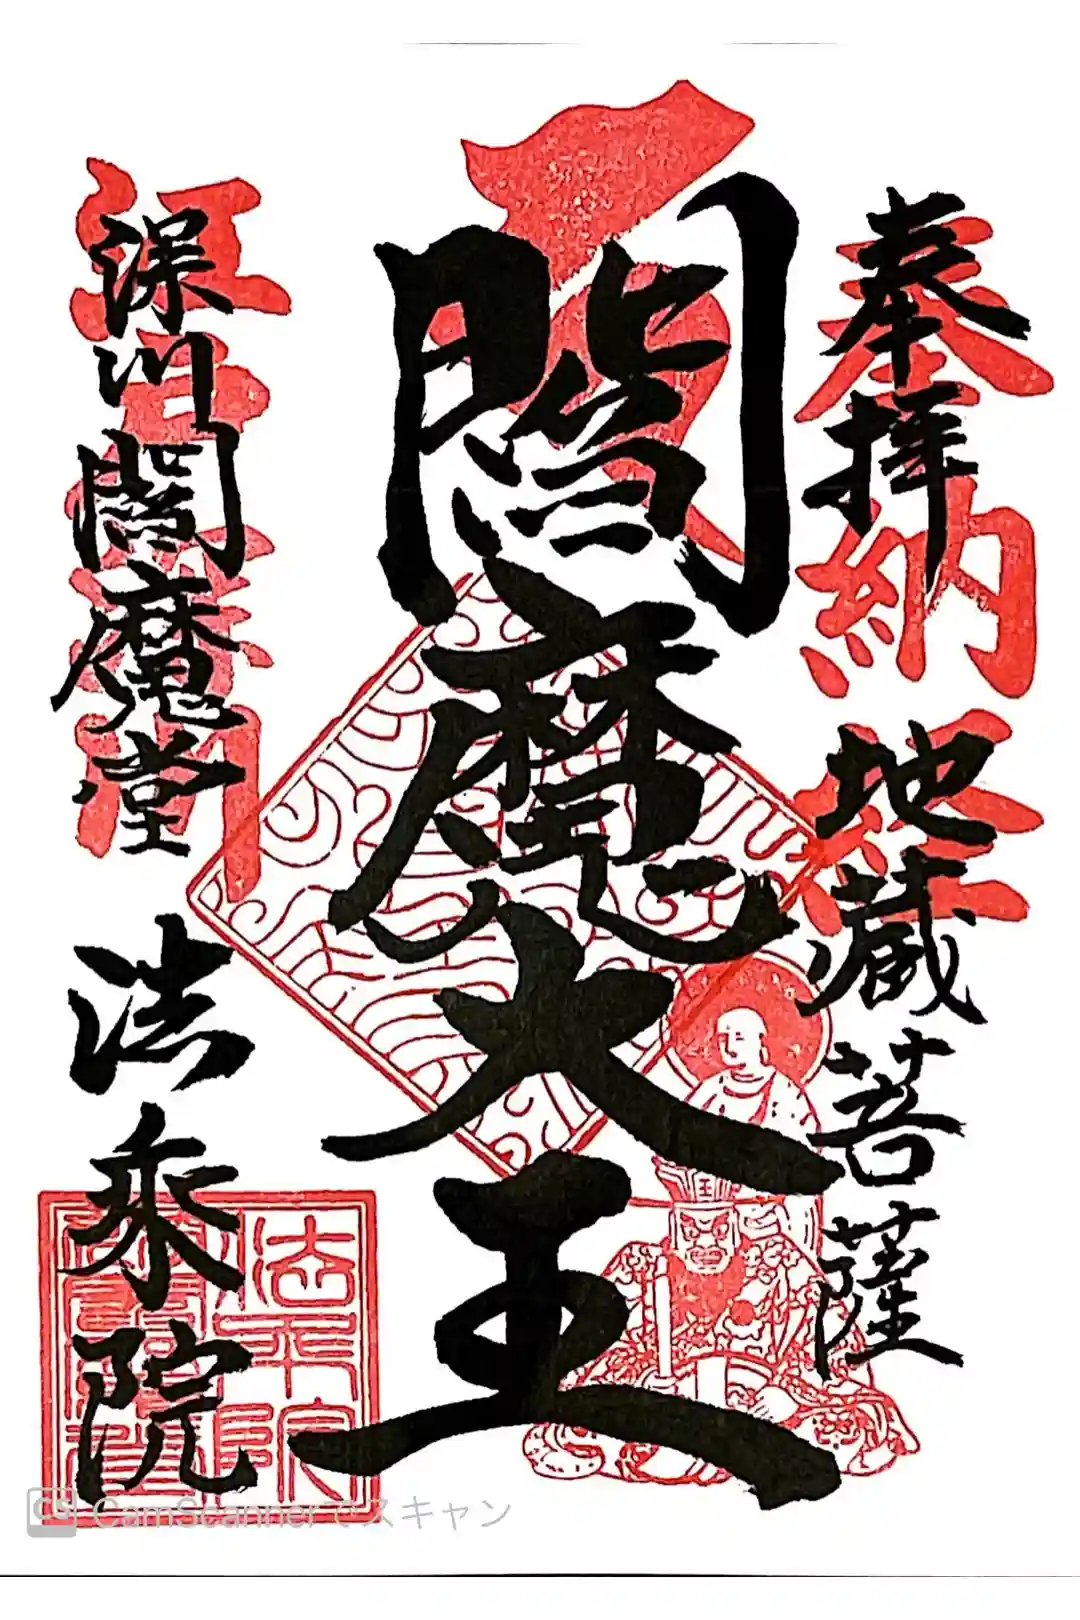 奉拝 地蔵菩薩
奉納経
閻魔大王
深川閻魔堂 法乗院
法乗院
王
CS CamScannerでスキャン